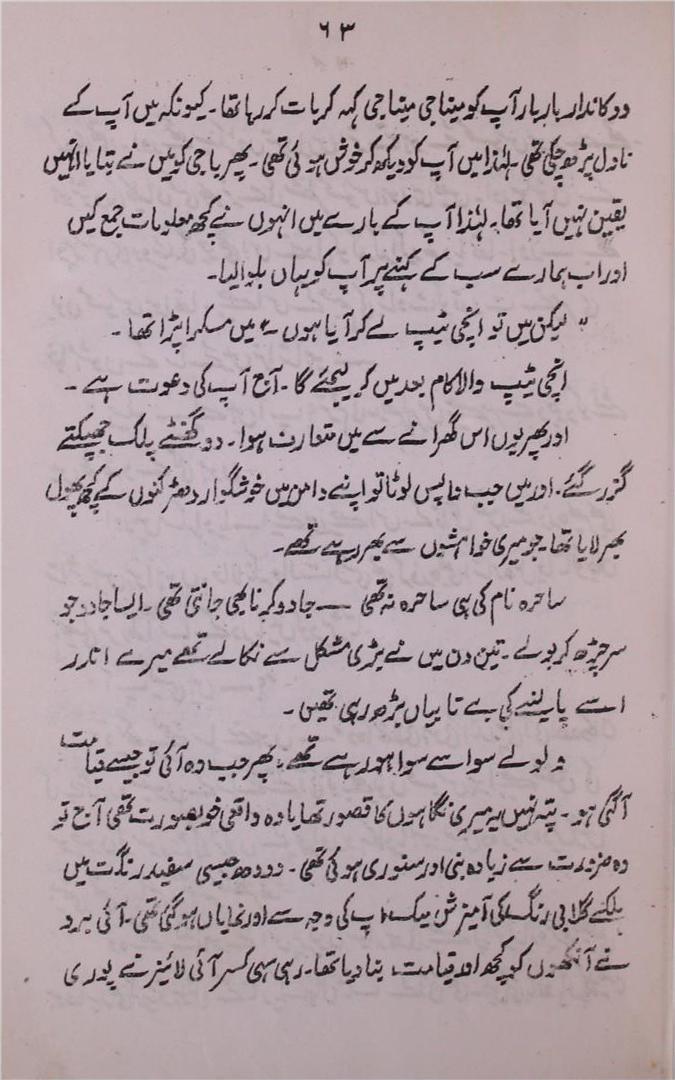 ۶۳
دوکاندار بار بار آپ کو میناجی میناجی کہہ کر بات کر رہا تھا۔ کیونکہ میں آپ کے
ناول پڑھ چکی تھی۔ لہٰذا میں آپ کو دیکھ کر خوش ہوئی تھی۔ پھر باجی کو میں نے بتایا انہیں
یقین نہیں آیا تھا۔ لہٰذا آپ کے بارے میں انہوں نے کچھ معلومات جمع کیں
اور اب ہمارے سب کے کہنے پر آپ کو یہاں بلوا لیا۔
" لیکن میں تو انچی ٹیپ لے کر آیا ہوں ۔" میں مسکرا پڑا تھا ۔
انچی ٹیپ والا کام بعد میں کر لیجئے گا ۔ آج آپ کی دعوت ہے ۔
اور پھر یوں اس گھرانے سے میں متعارف ہوا ۔ دو گھنٹے پلک جھپکتے
گزر گئے ۔ اور میں جب واپس لوٹا تو اپنے دامن میں خوشگوار دھڑکنوں کے کچھ پھول
بھر لایا تھا ۔ جو میری خواہشوں سے بھر رہے تھے ۔
ساحرہ نام کی ہی ساحرہ نہ تھی — جادو کرنا بھی جانتی تھی ۔ ایسا جادو جو
سر چڑھ کر بولے ۔ تین دن میں نے بڑی مشکل سے نکالے تھے میرے اندر
اسے پا لینے کی بے تابیاں بڑھ رہی تھیں ۔
ولولے سوا سے سوا ہو رہے تھے ۔ پھر جب وہ آئی تو جیسے قیامت
آ گئی ہو ۔ پتہ نہیں یہ میری نگاہوں کا قصور تھا یا وہ واقعی خوبصورت تھی آج تو
وہ ضرورت سے زیادہ بنی اور سنوری ہوئی تھی ۔ دودھ جیسی سفید رنگت میں
ہلکے گلابی رنگ کی آمیزش میک اپ کی وجہ سے اور نمایاں ہو گئی تھی ۔ آئی برو
نے آنکھوں کو کچھ اور قیامت بنا دیا تھا ۔ رہی سہی کسر آئی لائینر نے پوری